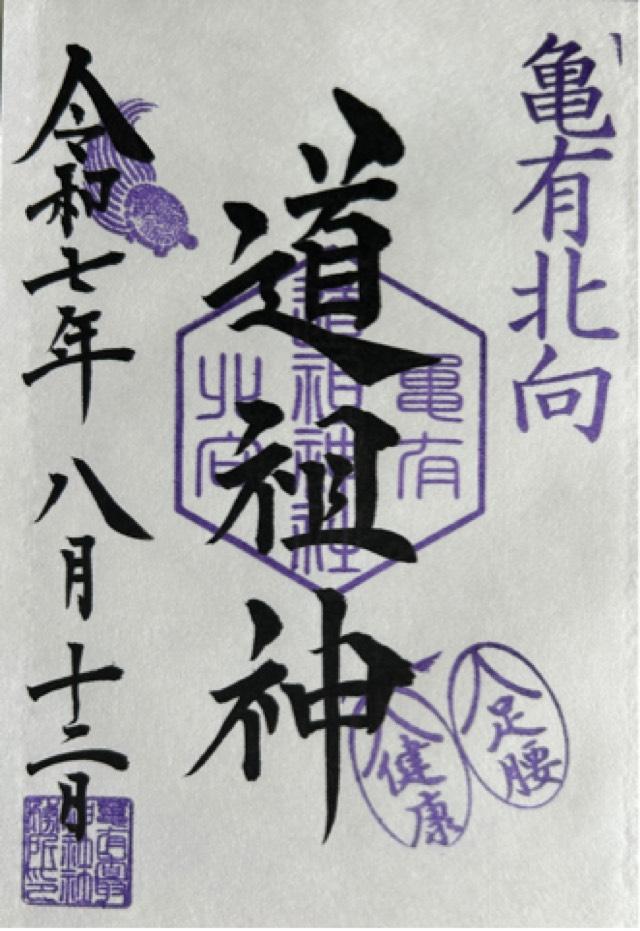 亀有北向
道祖神
亀有
道祖神社
北向
足腰
健康
令和七年 八月十二日
亀有香取神社社務所印